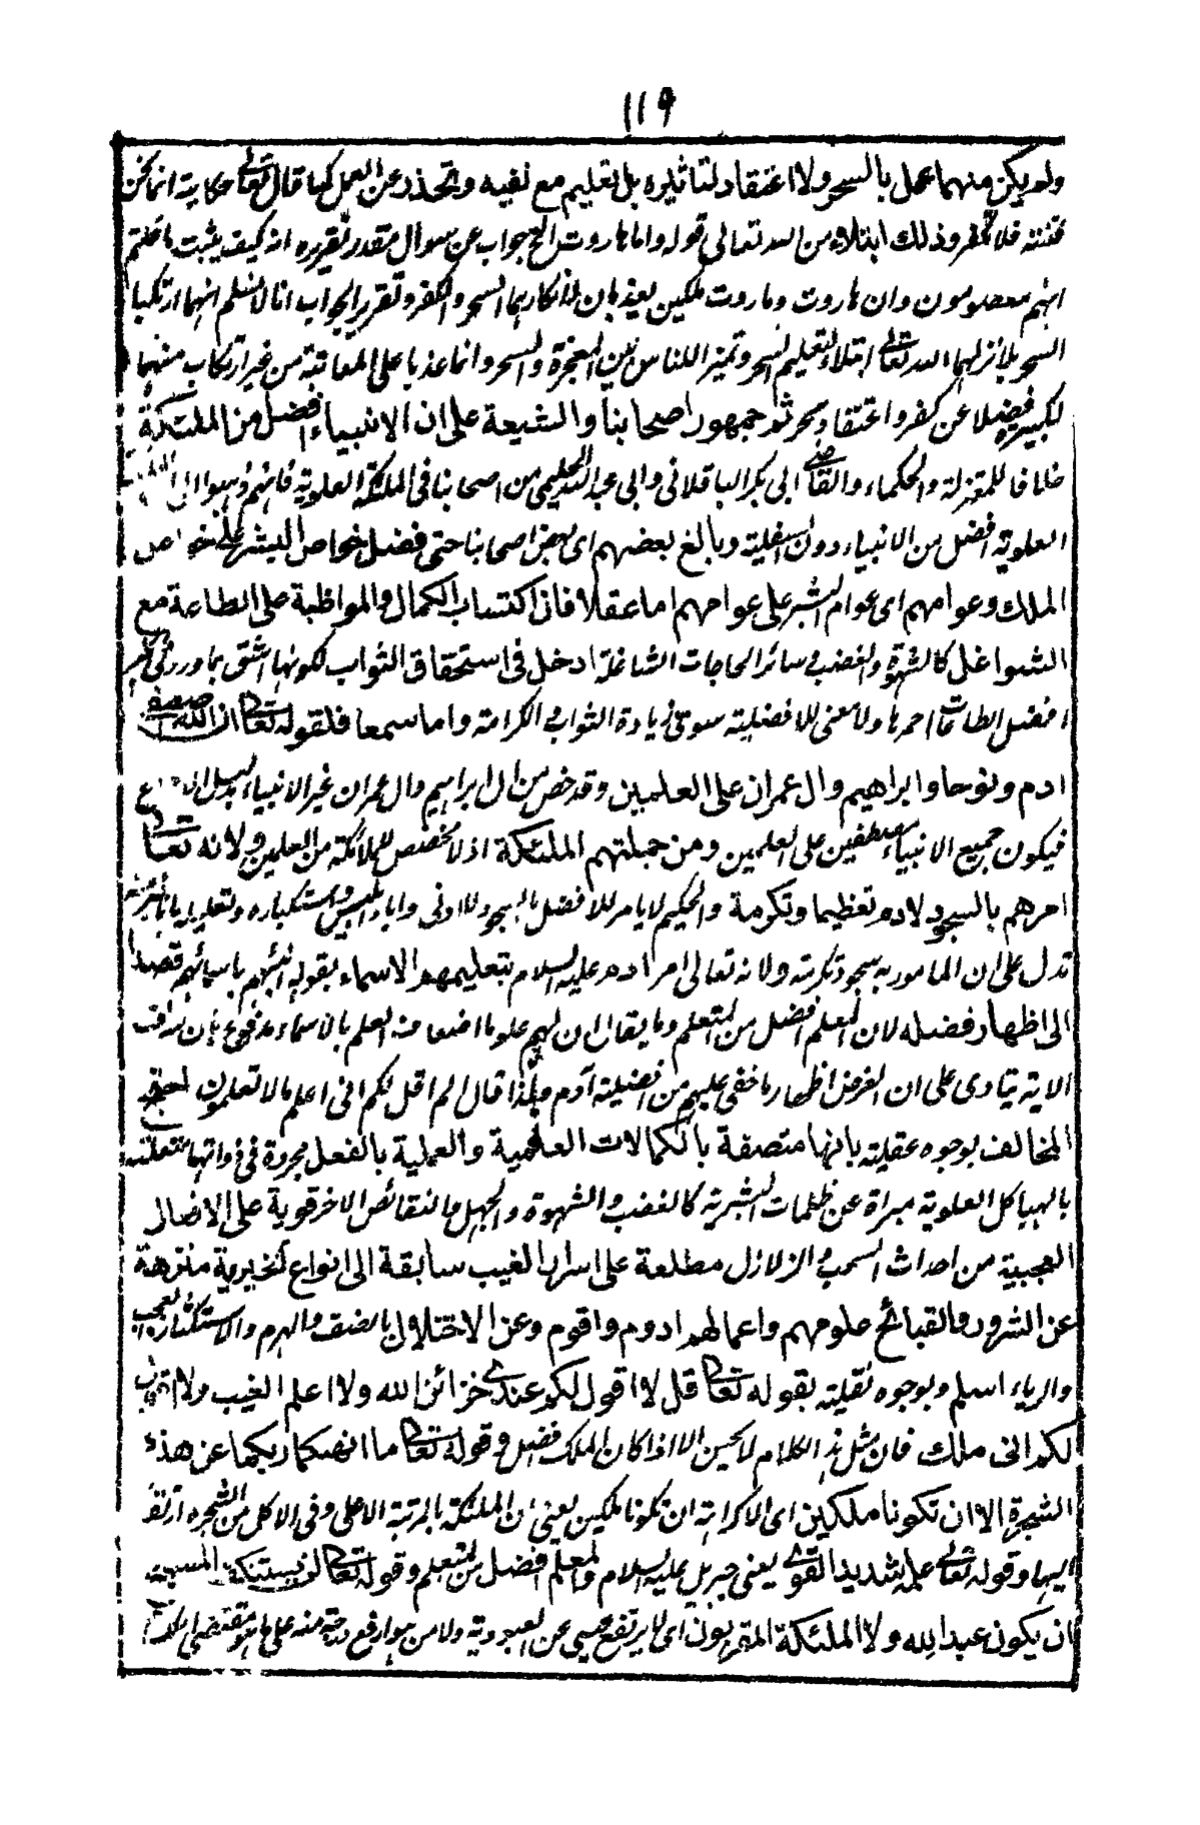 ١١٩
ولم يكن منهما عمل بالسحر ولا اعتقاد لتاثيره بل تعليم مع نفيه وتحذير عن العمل كما قال تعالى حكاية انما نحن
فتنة فلا تكفر وذلك ابتلاء من الله تعالى قوله واما هاروت الخ جواب عن سوال مقدر تقريره انه كيف يثبت ما قلتم
انهم معصومون وان هاروت وماروت ملكين يعذبان لارتكابهما السحر والكفر وتقرير الجواب انا لا نسلم انهما ارتكبا
السحر بل انزلهما الله تعالى ابتلاء لتعليم السحر وتميز اللناس بين المعجزة والسحر وانما عذبا على المعاتبة من غير ارتكاب منهما
لكبيرة فضلا عن كفر واعتقاد سحر ثم جمهور اصحابنا والشيعة على ان الانبياء افضل من الملئكة
خلافا للمعتزلة والحكماء والقاضى ابى بكر الباقلانى وابى عبد الله الحليمى من اصحابنا فى الملئكة العلوية فانهم ذهبوا الى
العلوية افضل من الانبياء دون السفلية وبالغ بعضهم اى بعض اصحابنا حتى فضل خواص البشر على خواص
الملك وعوامهم اى عوام البشر على عوامهم اما عقلا فان اكتساب الكمال والمواظبة على الطاعة مع
الشواغل كالشهوة والغضب وسائر الحاجات الشاغلة ادخل فى استحقاق الثواب لكونها اشق بما ورد فى
افضل الطاعات احمزها ولا معنى للافضلية سوى زيادة الثواب والكرامة واما سمعا فلقوله تعالى ان الله اصطفى
ادم ونوحا وابراهيم وال عمران على العلمين وقد خص من ال ابراهيم وال عمران غير الانبياء بدليل
فيكون جميع الانبياء مصطفين على العلمين ومن جملتهم الملئكة اذ لا مخصص للملائكة من العلمين ولانه تعالى
امرهم بالسجود لادم تعظيما وتكرمة والحكيم لا يامر للافضل بالسجود للادنى واباء ابليس واستكباره وتعليله بانا خير منه
تدل على ان المامور به سجود تكرمة ولانه تعالى امر ادم عليه السلام بتعليمهم الاسماء بقوله انبئهم باسمائهم قصدا
الى اظهار فضله لان المعلم افضل من المتعلم وما يقال ان لهم علوما اضعاف العلم بالاسماء مدفوع بان
الاية ينادى على ان الغرض اظهار ما خفى عليهم من افضلية آدم ولذا قال الم اقل لكم انى اعلم مالا تعلمون احتج
المخالف بوجوه عقلية بانها متصفة بالكمالات العلمية والعملية بالفعل مجردة فى ذواتها متعلقة
بالهياكل العلوية مبراة عن ظلمات البشرية كالغضب والشهوة والجهل والنقائص الاخر قوية على الافعال
العجيبة من احداث السحب والزلازل مطلعة على اسرار الغيب سابقة الى انواع الخيرية منزهة
عن الشرور والقبائح علومهم واعمالهم ادوم واقوم وعن الاختلال بالضعف والهرم والاستكثار والعجب
والرياء اسلم وبوجوه نقلية بقوله تعالى قل لا اقول لكم عندى خزائن الله ولا اعلم الغيب ولا اقول
لكم انى ملك فان مثل هذا الكلام لا يحسن الا اذا كان الملك افضل وقوله تعالى ما انهىكما ربكما عن هذه
الشجرة الا ان تكونا ملكين اى الا كراهة ان تكونا ملكين يعنى ان الملئكة بالمرتبة الاعلى وفى الاكل من الشجرة ارتقاء
اليها وقوله تعالى علمه شديد القوى يعنى جبريل عليه السلام والمعلم افضل من المتعلم وقوله تعالى لن يستنكف المسيح
ان يكون عبد الله ولا الملئكة المقربون اى لا يرتفع عيسى عن العبودية ولا من هو ارفع درجة منه على ما هو مقتضى